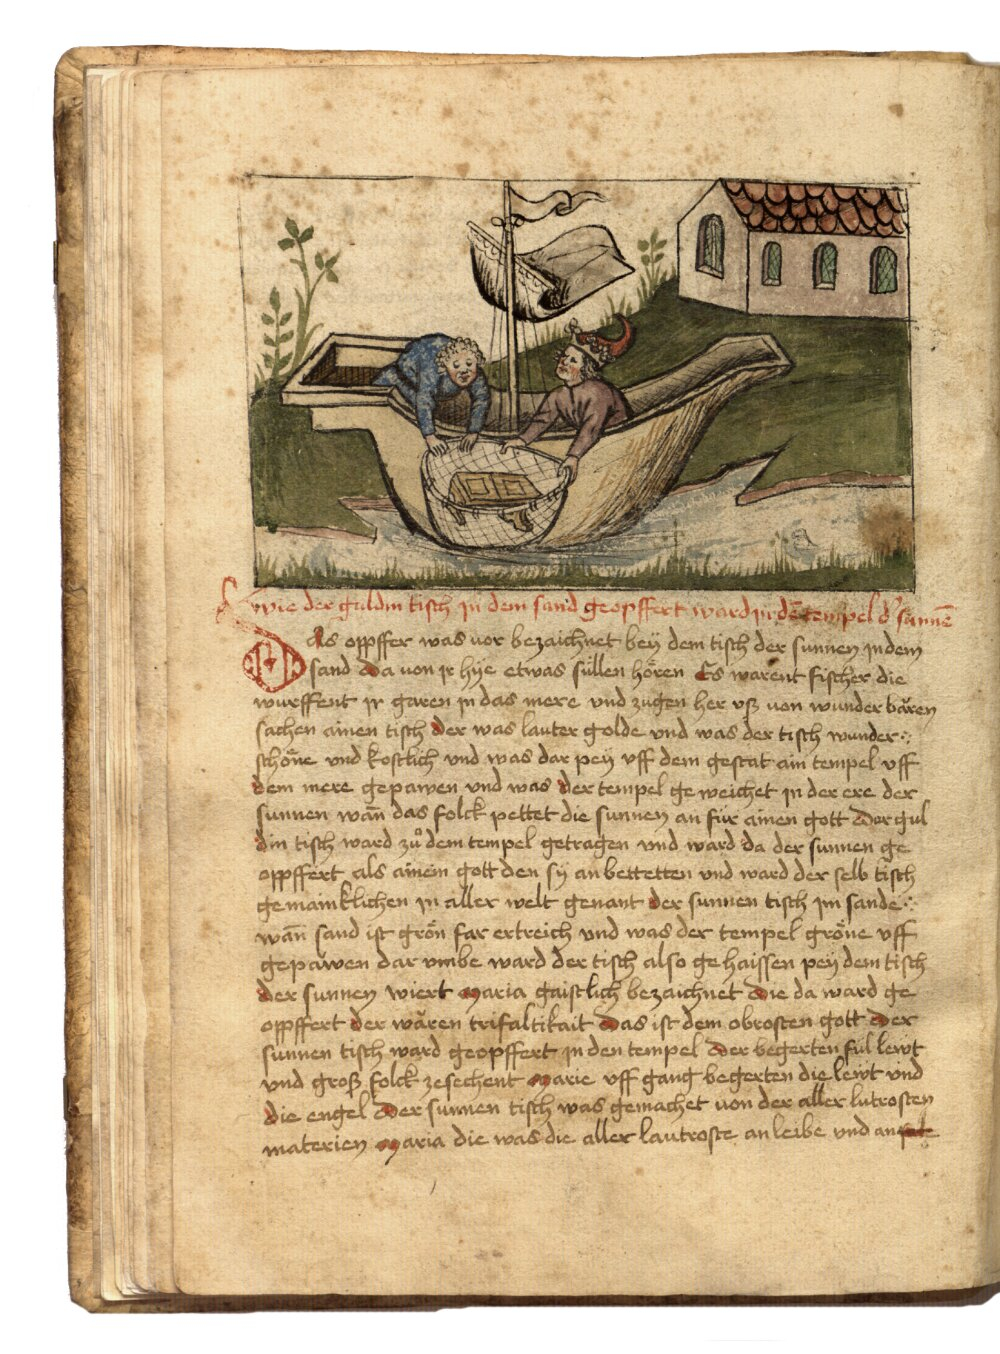 wie der guldin tisch in dem sand geopffert ward in dē tempel d' sunnē
Das oppffer was vor bezaichnet beÿ dem tisch der sunnen in dem
sand da von ir hÿe etwas süllen hören Es warent fischer die
wurffent ir garen in das mere vnd zugen her vß von wunderbären
sachen ainen tisch der was lauter golde vnd was der tisch wunder
schöne vnd kostlich vnd was dar peÿ vff dem gestat ain tempel vff
dem mere gepawen vnd was der tempel geweichet in der ere der
sunnen wañ das folck pettet die sunnen an für ainen gott der gul
din tisch ward zů dem tempel getragen vnd ward da der sunnen ge
oppffert als ainem gott den sÿ an bettetten vnd ward der selb tisch
gemainklichen in aller welt genant der sunnen tisch im sande
wañ sand ist grön far ertreich vnd was der tempel gröne vff
gepawen dar vmbe ward der tisch also gehaissen peÿ dem tisch
der sunnen wiert Maria gaistlich bezaichnet die da ward ge
oppffert der wären trifaltikait das ist dem obrosten gott der
sunnen tisch ward geopffert in den tempel der begerten fül lewt
vnd groß folck zesechent Marie vff gang begerten die lewt vnd
die engel der sunnen tisch was gemachet von der aller lutrosten
materien Maria die was die aller lautroste an leibe vnd an